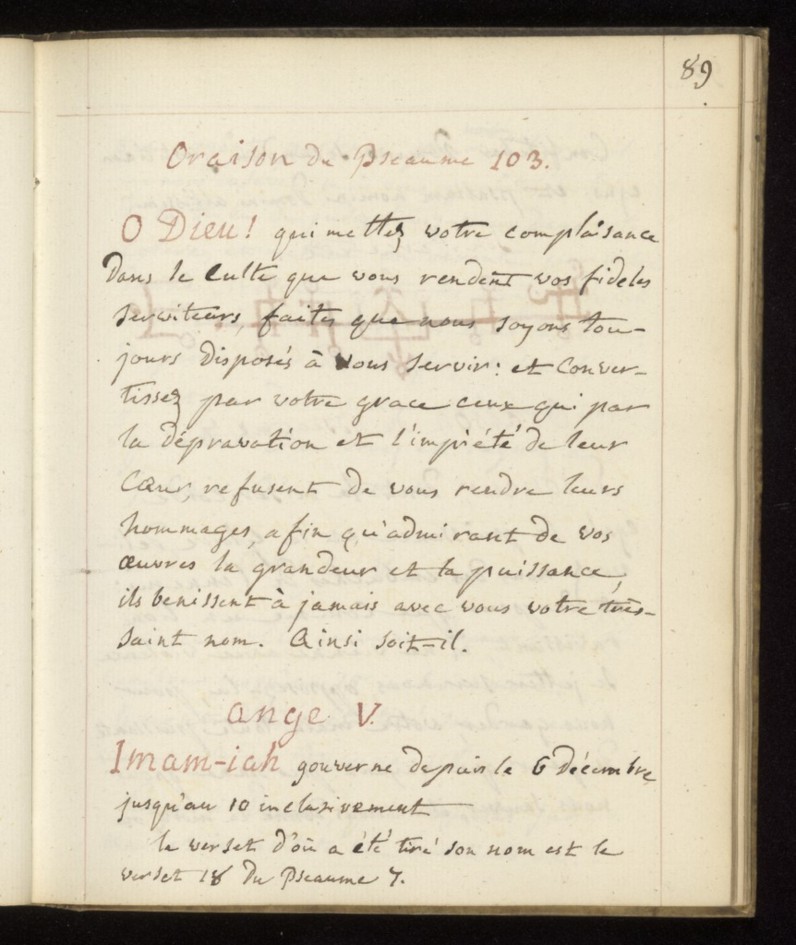 89
Oraison du Pseaume 103.
O Dieu! qui mettez votre complaisance
Dans le Culte que vous rendent vos fideles
serviteurs, faites que nous soyons tou-
jours disposés à Vous servir: et Conver-
tissez par votre grace ceux qui par
la dépravation et l'impiété de leur
Cœur, refusent de vous rendre leurs
hommages, afin qu'admirant de vos
œuvres la grandeur et la puissance,
ils benissent à jamais avec vous votre très-
saint nom. Ainsi soit-il.
ange V.
Imam-iah gouverne depuis le 6 décembre
jusqu'au 10 inclusivement
le verset d'où a été tiré son nom est le
verset 18 du Pseaume 7.